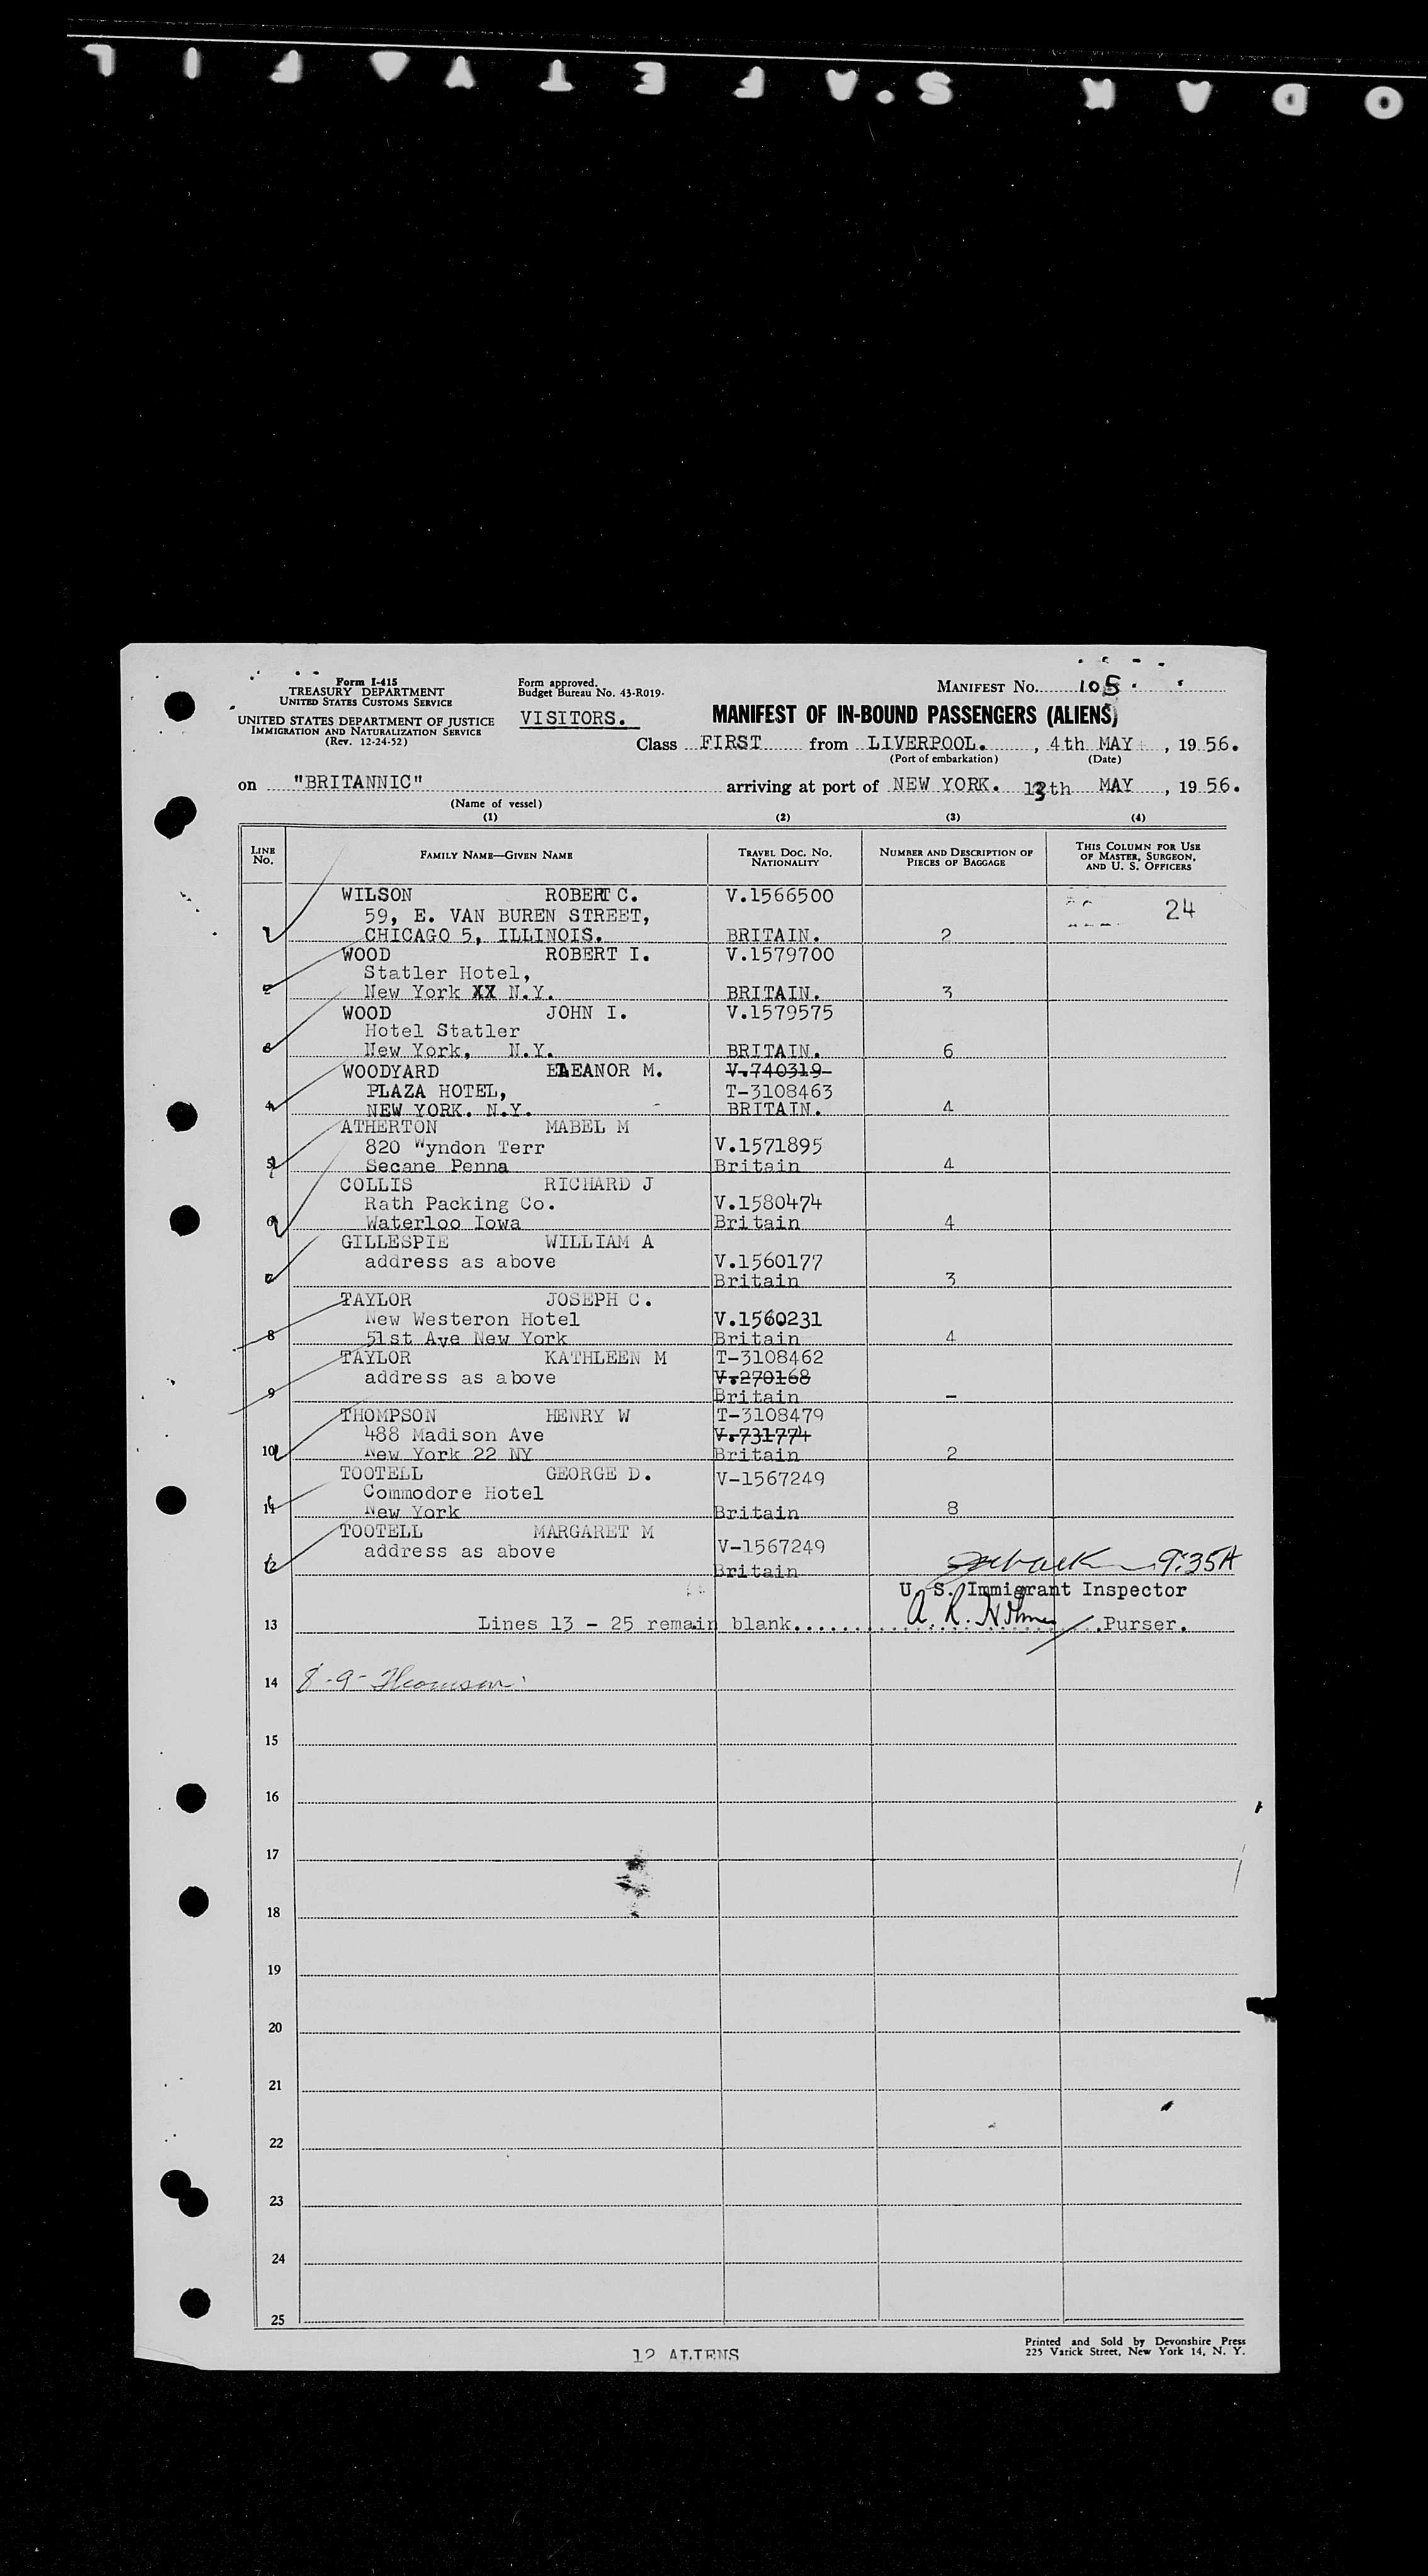 ODAK S.AFETY FIL
Form I-415
TREASURY DEPARTMENT
UNITED STATES CUSTOMS SERVICE
UNITED STATES DEPARTMENT OF JUSTICE
IMMIGRATION AND NATURALIZATION SERVICE
(Rev. 12-24-52)
Form approved.
Budget Bureau No. 43-R019.
VISITORS.
MANIFEST NO. 105.
MANIFEST OF IN-BOUND PASSENGERS (ALIENS)
Class FIRST from LIVERPOOL. , 4th MAY , 19 56.
(Port of embarkation) (Date)
on "BRITANNIC" arriving at port of NEW YORK. 13th MAY , 19 56.
(Name of vessel)
(1) (2) (3) (4)
LINE NO. FAMILY NAME—GIVEN NAME TRAVEL DOC. NO. NATIONALITY NUMBER AND DESCRIPTION OF PIECES OF BAGGAGE THIS COLUMN FOR USE OF MASTER, SURGEON, AND U. S. OFFICERS
WILSON ROBERT C. V.1566500 24
59, E. VAN BUREN STREET,
1 CHICAGO 5, ILLINOIS. BRITAIN. 2
WOOD ROBERT I. V.1579700
Statler Hotel,
2 New York XX N.Y. BRITAIN. 3
WOOD JOHN I. V.1579575
Hotel Statler
3 New York, N.Y. BRITAIN. 6
WOODYARD ELEANOR M. V.740319
PLAZA HOTEL, T-3108463
4 NEW YORK. N.Y. BRITAIN. 4
ATHERTON MABEL M
820 Wyndon Terr V.1571895
5 Secane Penna Britain 4
COLLIS RICHARD J
Rath Packing Co. V.1580474
6 Waterloo Iowa Britain 4
GILLESPIE WILLIAM A
address as above V.1560177
7 Britain 3
TAYLOR JOSEPH C.
New Westeron Hotel V.1560231
8 51st Ave New York Britain 4
TAYLOR KATHLEEN M T-3108462
address as above V.270168
9 Britain –
THOMPSON HENRY W T-3108479
488 Madison Ave V.731774
10 New York 22 NY Britain 2
TOOTELL GEORGE D. V-1567249
Commodore Hotel
11 New York Britain 8
TOOTELL MARGARET M
address as above V-1567249
12 Britain
9:35A
U. S. Immigrant Inspector
13 Lines 13 - 25 remain blank. A. R. Purser.
14
15
16
17
18
19
20
21
22
23
24
25
12 ALIENS
Printed and Sold by Devonshire Press
225 Varick Street, New York 14, N. Y.